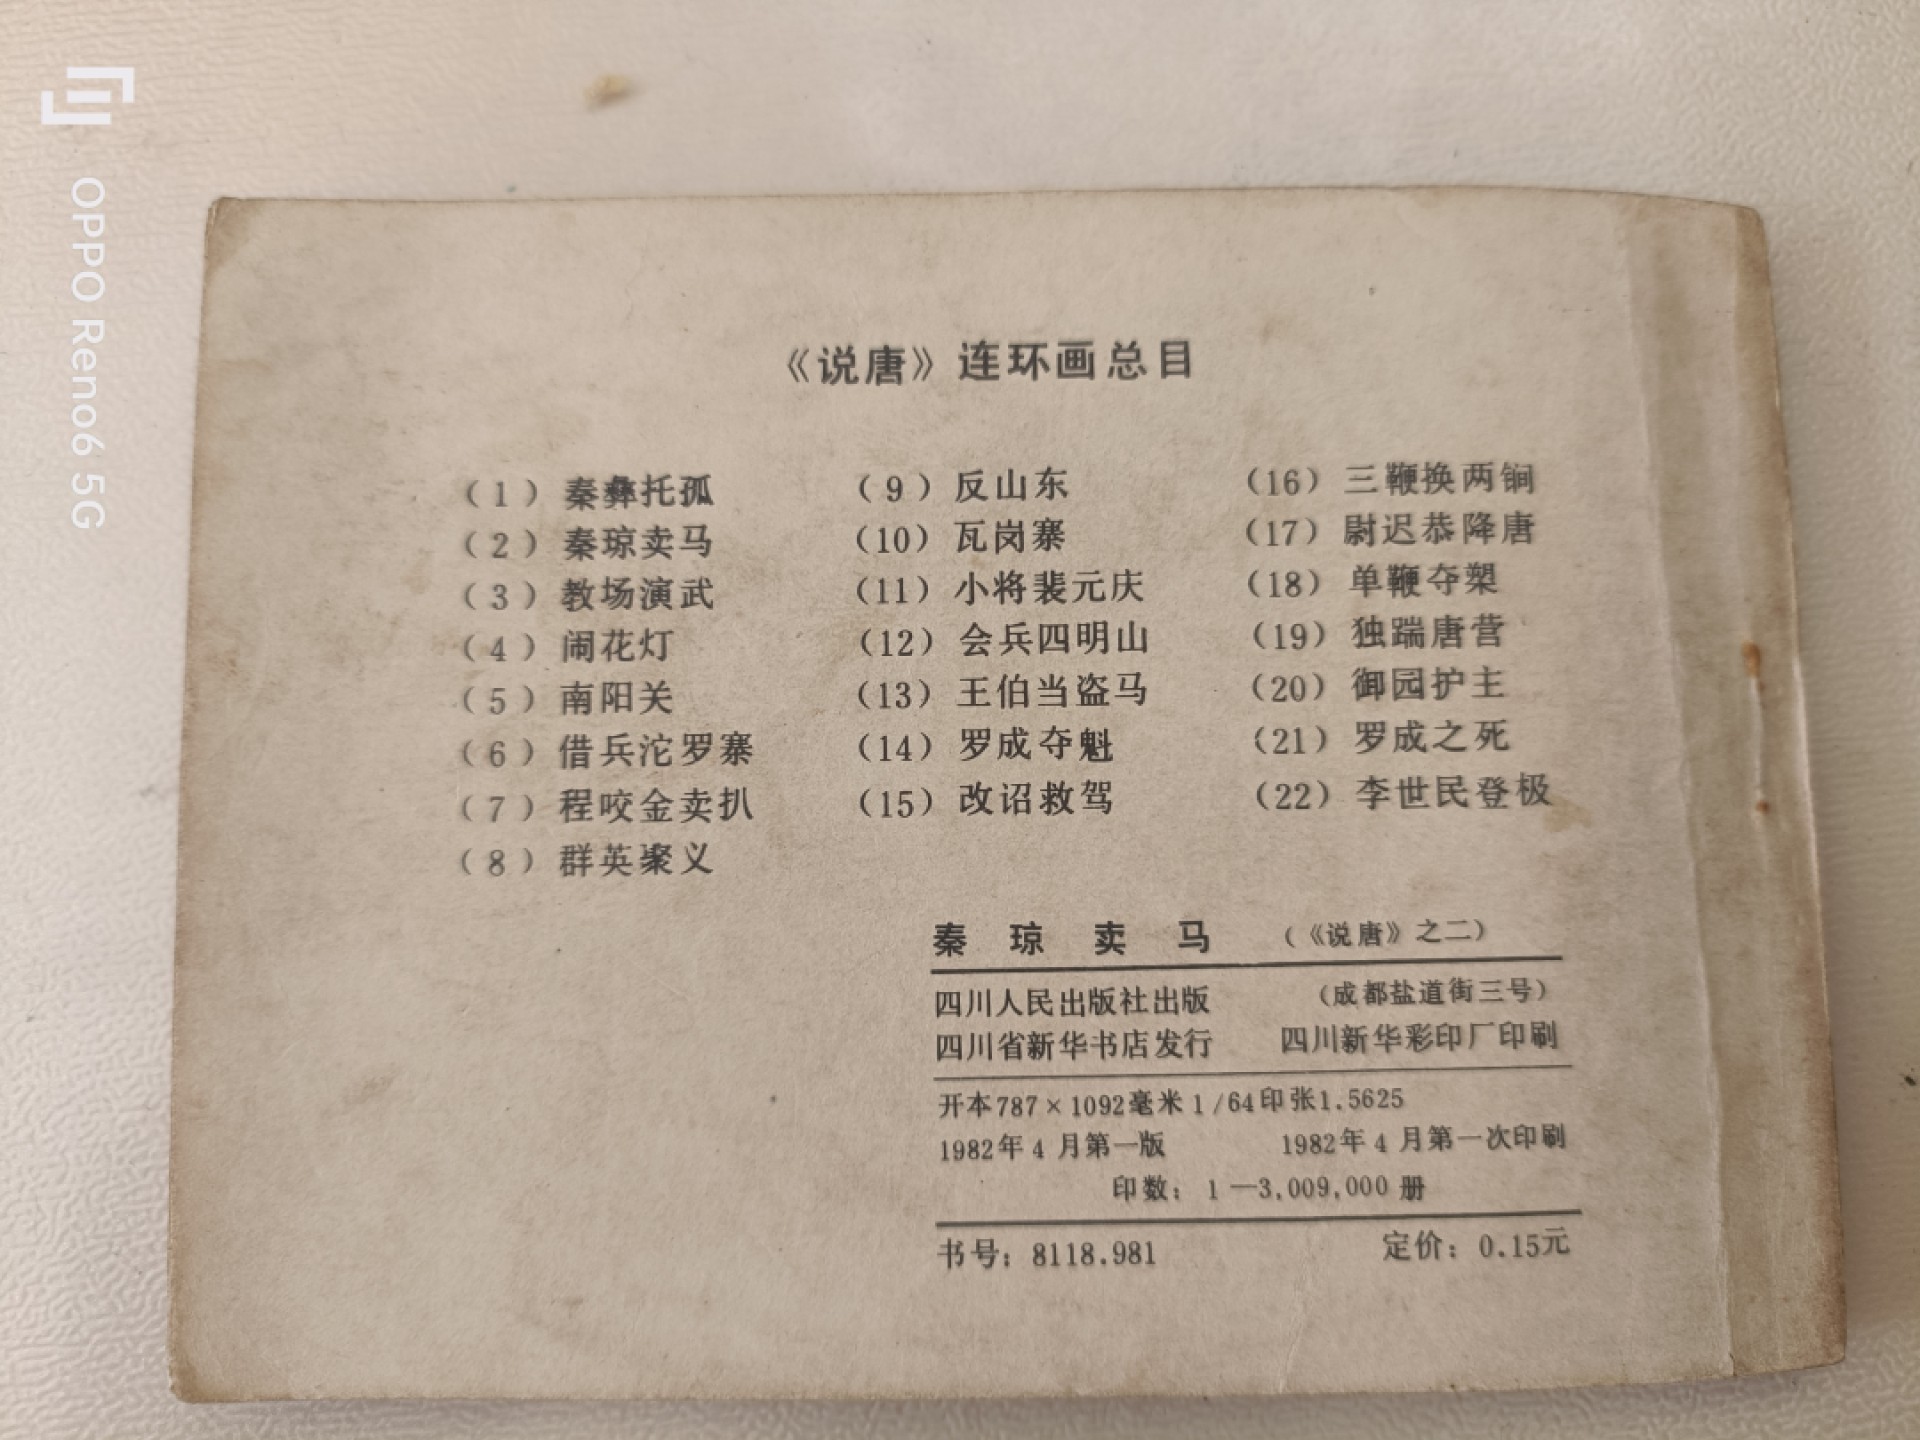 《说唐》连环画总目
（1）秦彝托孤
（2）秦琼卖马
（3）教场演武
（4）闹花灯
（5）南阳关
（6）借兵沱罗寨
（7）程咬金卖扒
（8）群英聚义
（9）反山东
（10）瓦岗寨
（11）小将裴元庆
（12）会兵四明山
（13）王伯当盗马
（14）罗成夺魁
（15）改诏救驾
（16）三鞭换两锏
（17）尉迟恭降唐
（18）单鞭夺槊
（19）独踹唐营
（20）御园护主
（21）罗成之死
（22）李世民登极
秦琼卖马 （《说唐》之二）
四川人民出版社出版 （成都盐道街三号）
四川省新华书店发行 四川新华彩印厂印刷
开本787×1092毫米1/64印张1.5625
1982年4月第一版 1982年4月第一次印刷
印数：1—3,009,000册
书号：8118.981 定价：0.15元
OPPO Reno6 5G